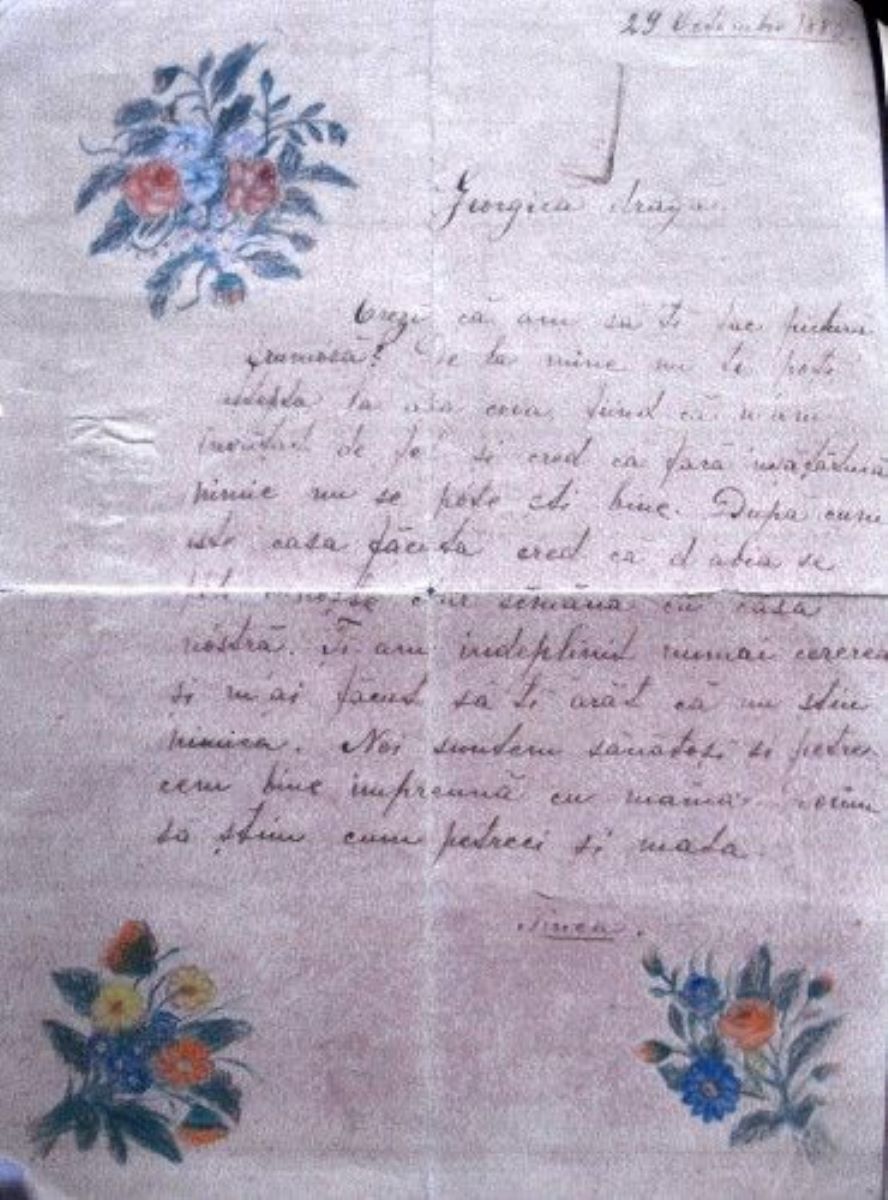 29 Octombre
Georgica draga
Crezi că am să ti fac pictura
frumósă? De la mine nu te poti
astepta la asa ceva, fiind că n'am
invătat de fel si cred că fară invătătură
nimic nu se póte sti bine. După cum
este casa făcuta cred că d'abia se
semăna cu casa
nóstră. Ti am indeplinit numai cererea
si m'ai făcut să ti arăt că nu stiu
nimica. Noi suntem sănătosi si petre
cem bine impreună cu mama. Dorim
sa știm cum petreci si mata.
Tinca.